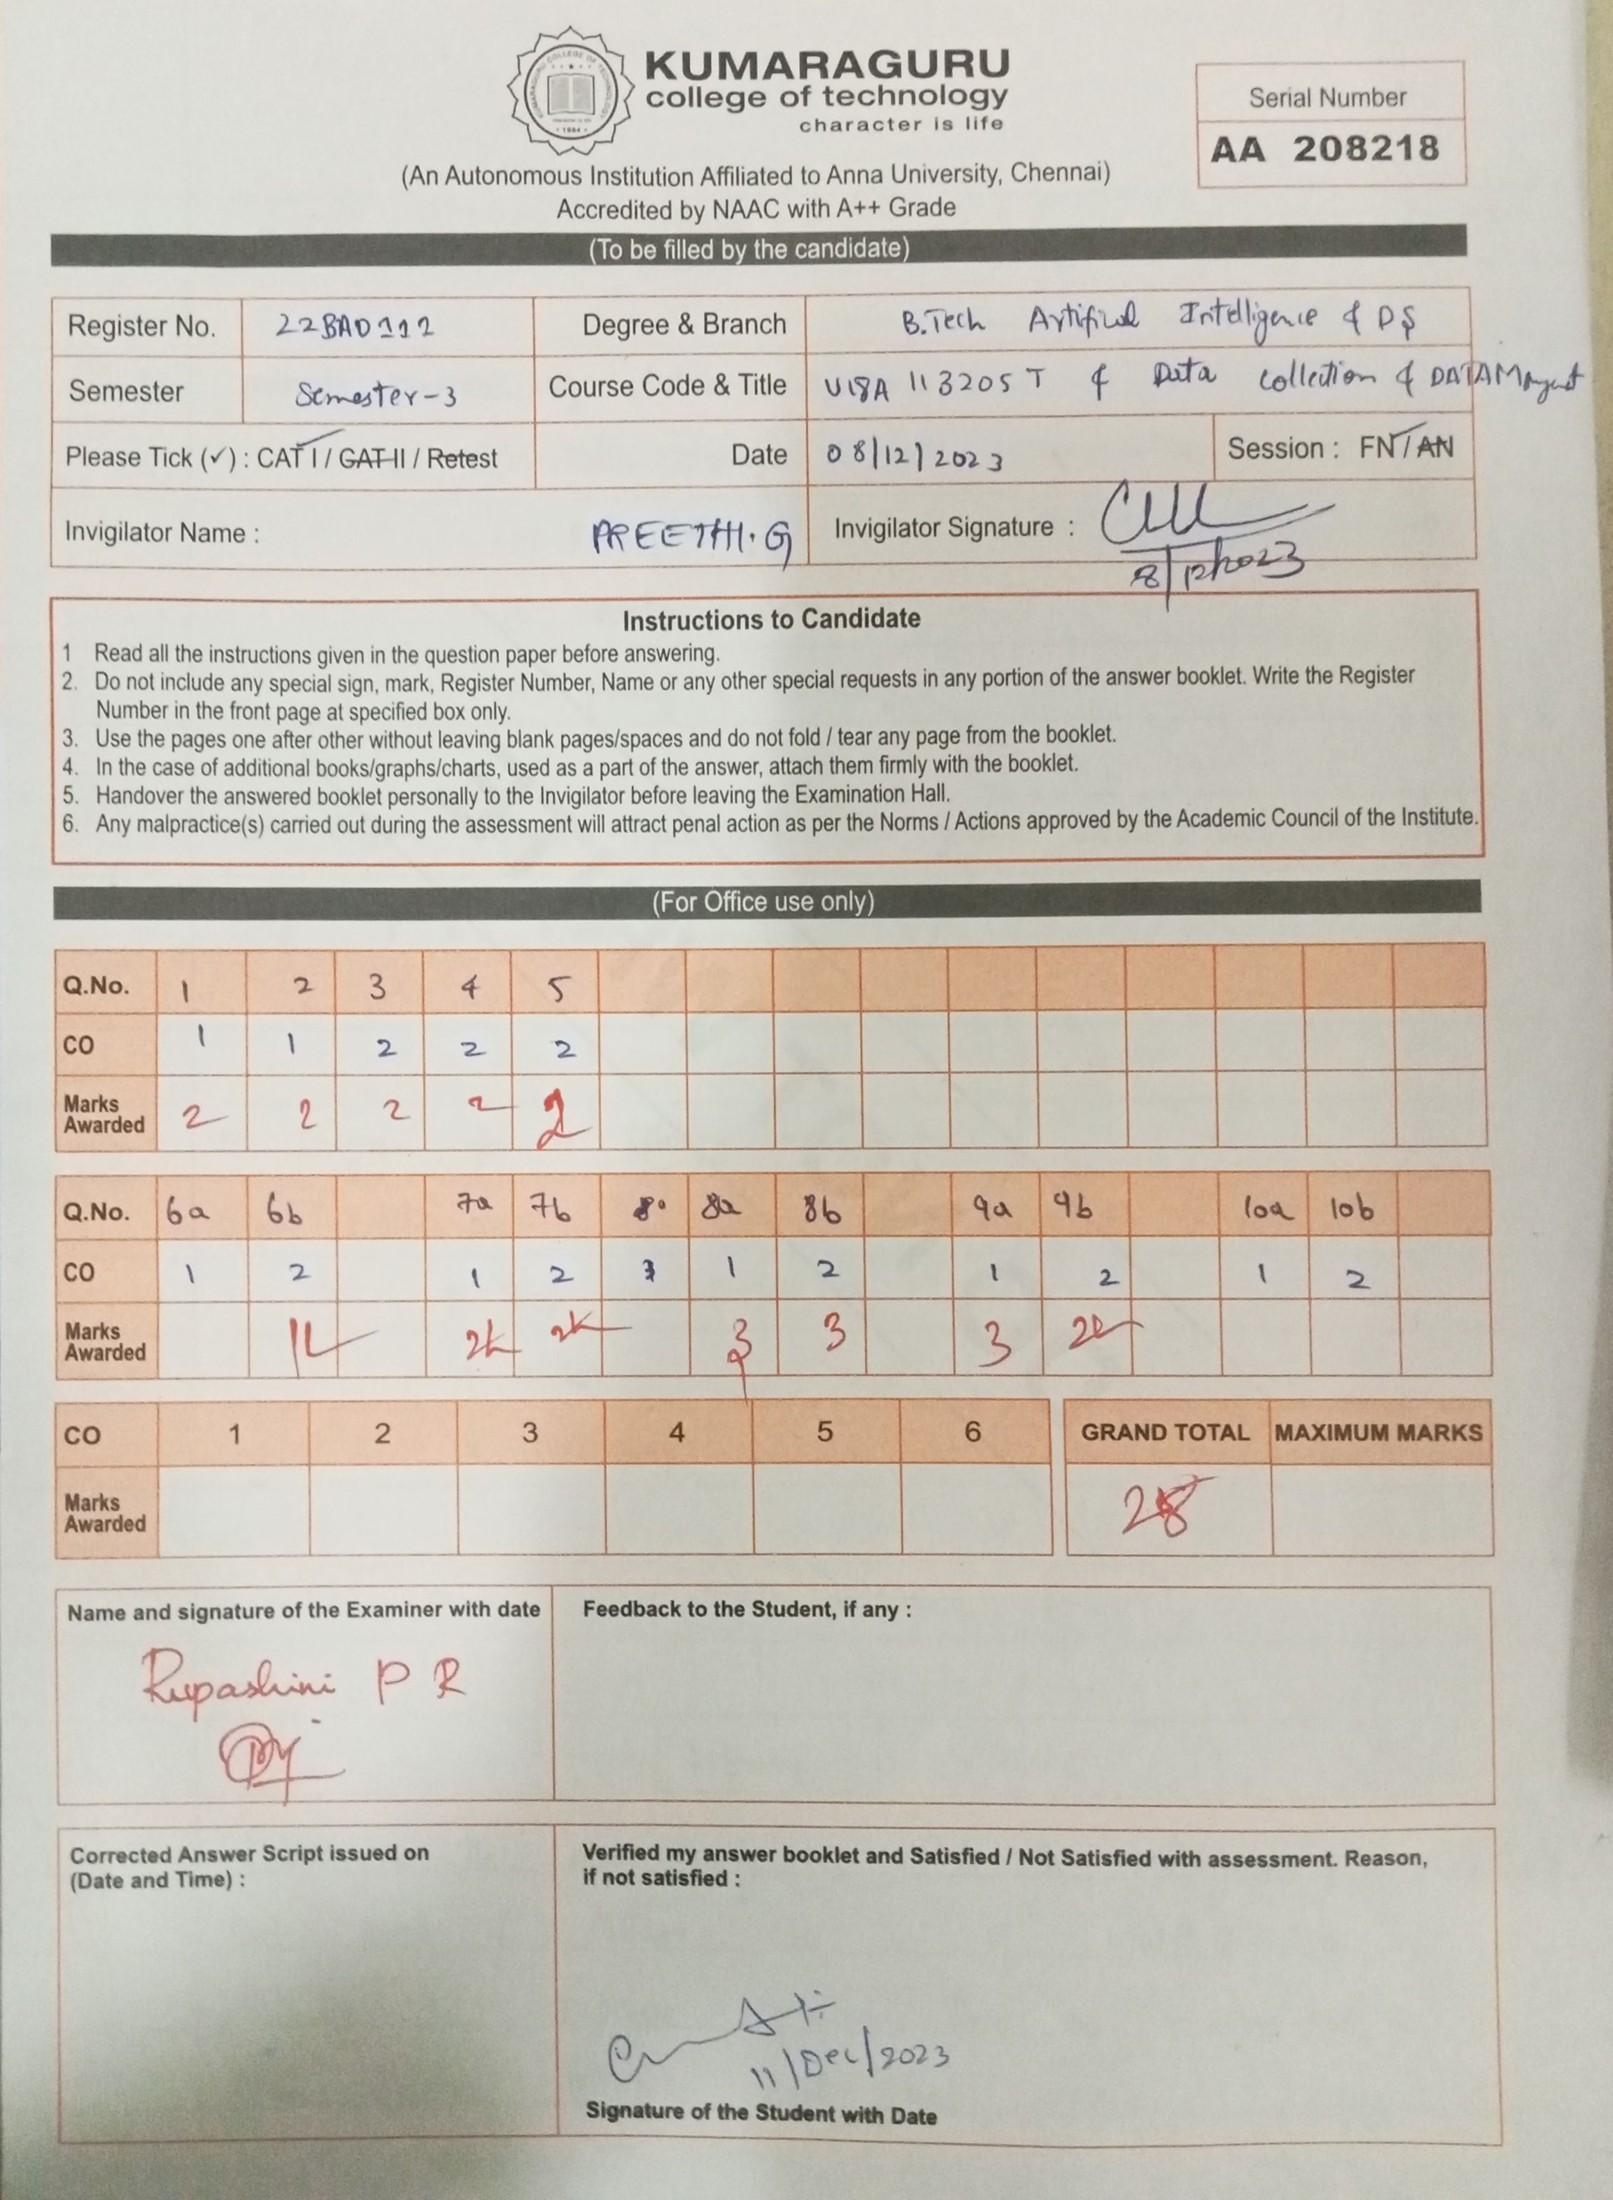 KUMARAGURU
college of technology
character is life
(An Autonomous Institution Affiliated to Anna University, Chennai)
Accredited by NAAC with A++ Grade
Serial Number
AA 208218
(To be filled by the candidate)
Register No. 22BAD112 Degree & Branch B.Tech Artificial Intelligence & DS
Semester Semester-3 Course Code & Title U18A 113205 T & Data collection &
Please Tick (✓) : CAT I / CAT II / Retest Date 08/12/2023 Session : FN / AN
Invigilator Name : PREETHI.G Invigilator Signature :
8/12/2023
Instructions to Candidate
1 Read all the instructions given in the question paper before answering.
2. Do not include any special sign, mark, Register Number, Name or any other special requests in any portion of the answer booklet. Write the Register
Number in the front page at specified box only.
3. Use the pages one after other without leaving blank pages/spaces and do not fold / tear any page from the booklet.
4. In the case of additional books/graphs/charts, used as a part of the answer, attach them firmly with the booklet.
5. Handover the answered booklet personally to the Invigilator before leaving the Examination Hall.
6. Any malpractice(s) carried out during the assessment will attract penal action as per the Norms / Actions approved by the Academic Council of the Institute.
(For Office use only)
Q.No. 1 2 3 4 5
CO 1 1 2 2 2
Marks Awarded 2 2 2 2 2
Q.No. 6a 6b 7a 7b 8a 8b 9a 9b 10a 10b
CO 1 2 1 2 1 2 1 2 1 2
Marks Awarded 3 3 3
CO 1 2 3 4 5 6 GRAND TOTAL MAXIMUM MARKS
Marks Awarded 28
Name and signature of the Examiner with date
Rupashini P R
Feedback to the Student, if any :
Corrected Answer Script issued on
(Date and Time) :
Verified my answer booklet and Satisfied / Not Satisfied with assessment. Reason,
if not satisfied :
11/Dec/2023
Signature of the Student with Date